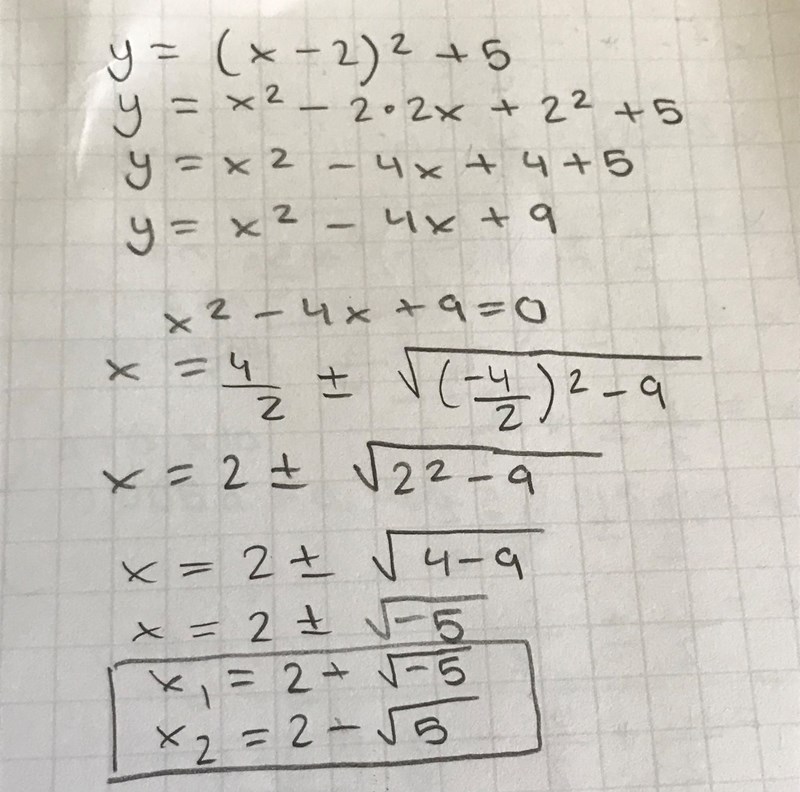 y = (x - 2)² + 5
y = x² - 2·2x + 2² + 5
y = x² - 4x + 4 + 5
y = x² - 4x + 9
x² - 4x + 9 = 0
x = 4/2 ± √((-4/2)² - 9)
x = 2 ± √(2² - 9)
x = 2 ± √(4 - 9)
x = 2 ± √(-5)
x₁ = 2 + √(-5)
x₂ = 2 - √5